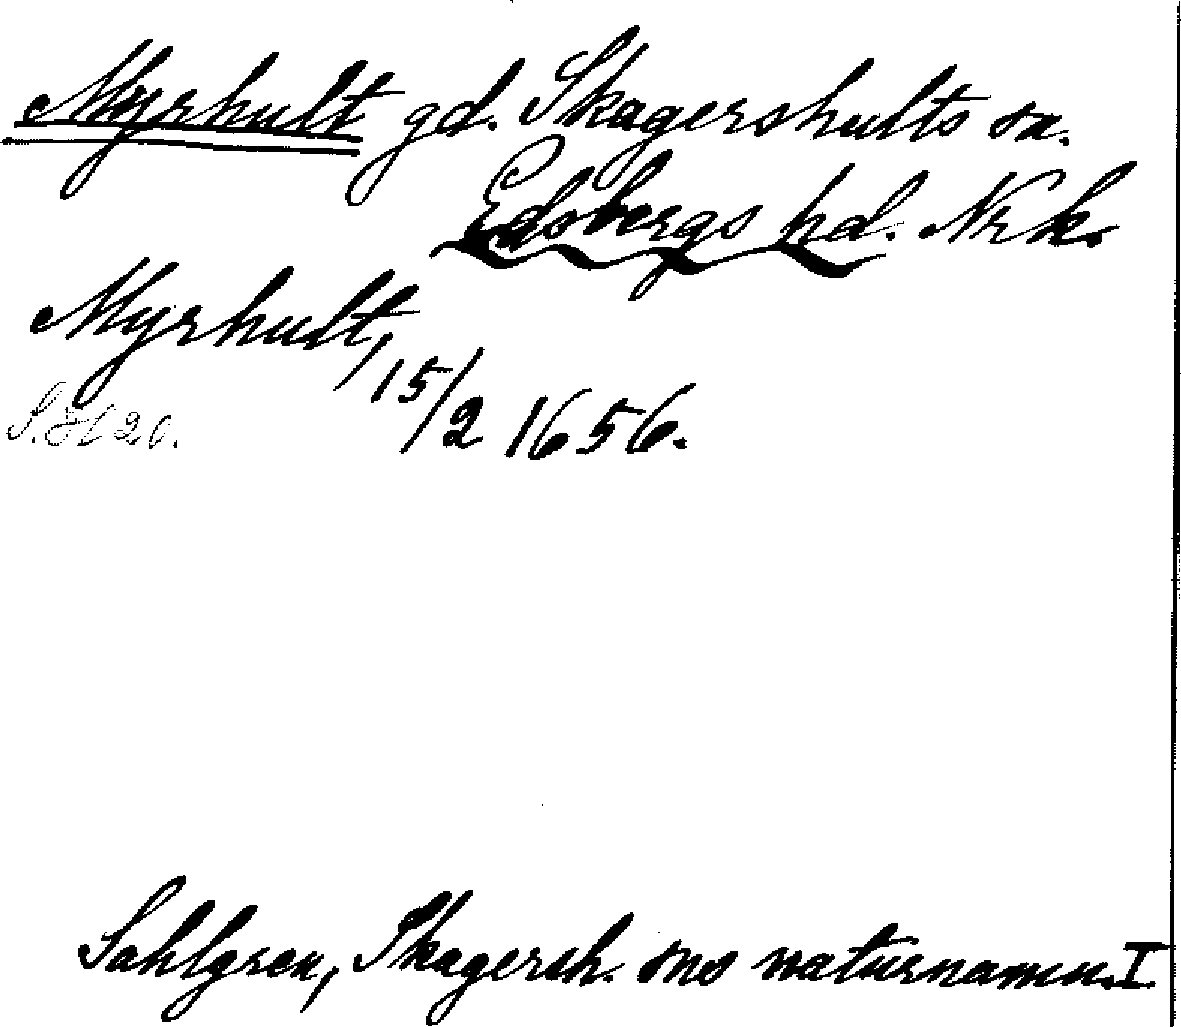 Myrhult gd. Skagershults sn.
Edsbergs hd. Nrk.
Myrhult, 15/2 1656.
S. 20.
Sahlgren, Skagersh. sns naturnamn. I